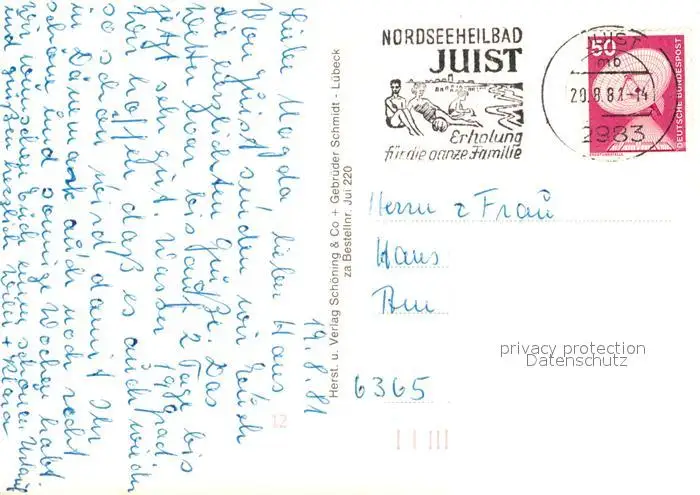 19.8.81
Liebe Magda, lieber Hans
Von Juist senden wir Euch
die allerbesten Grüße. Das
Wetter war bis auf 2 Tage bis
jetzt sehr gut. Wasser Grad
wir hoffen, daß es auch weiter
so schön wird, damit Ihr
in Dänemark auch noch recht
schöne und sonnige Wochen habt
wir wünschen Euch einen schönen Urlaub
und grüßen herzlich + Klara
Herst. u. Verlag Schöning & Co + Gebrüder Schmidt - Lübeck
za Bestellnr. Jui 220
12
NORDSEEHEILBAD
JUIST
Erholung
für die ganze Familie
JUIST
mb
20.8.81-14
2983
50
DEUTSCHE BUNDESPOST
Herrn u Frau
Hans
6365
privacy protection
Datenschutz